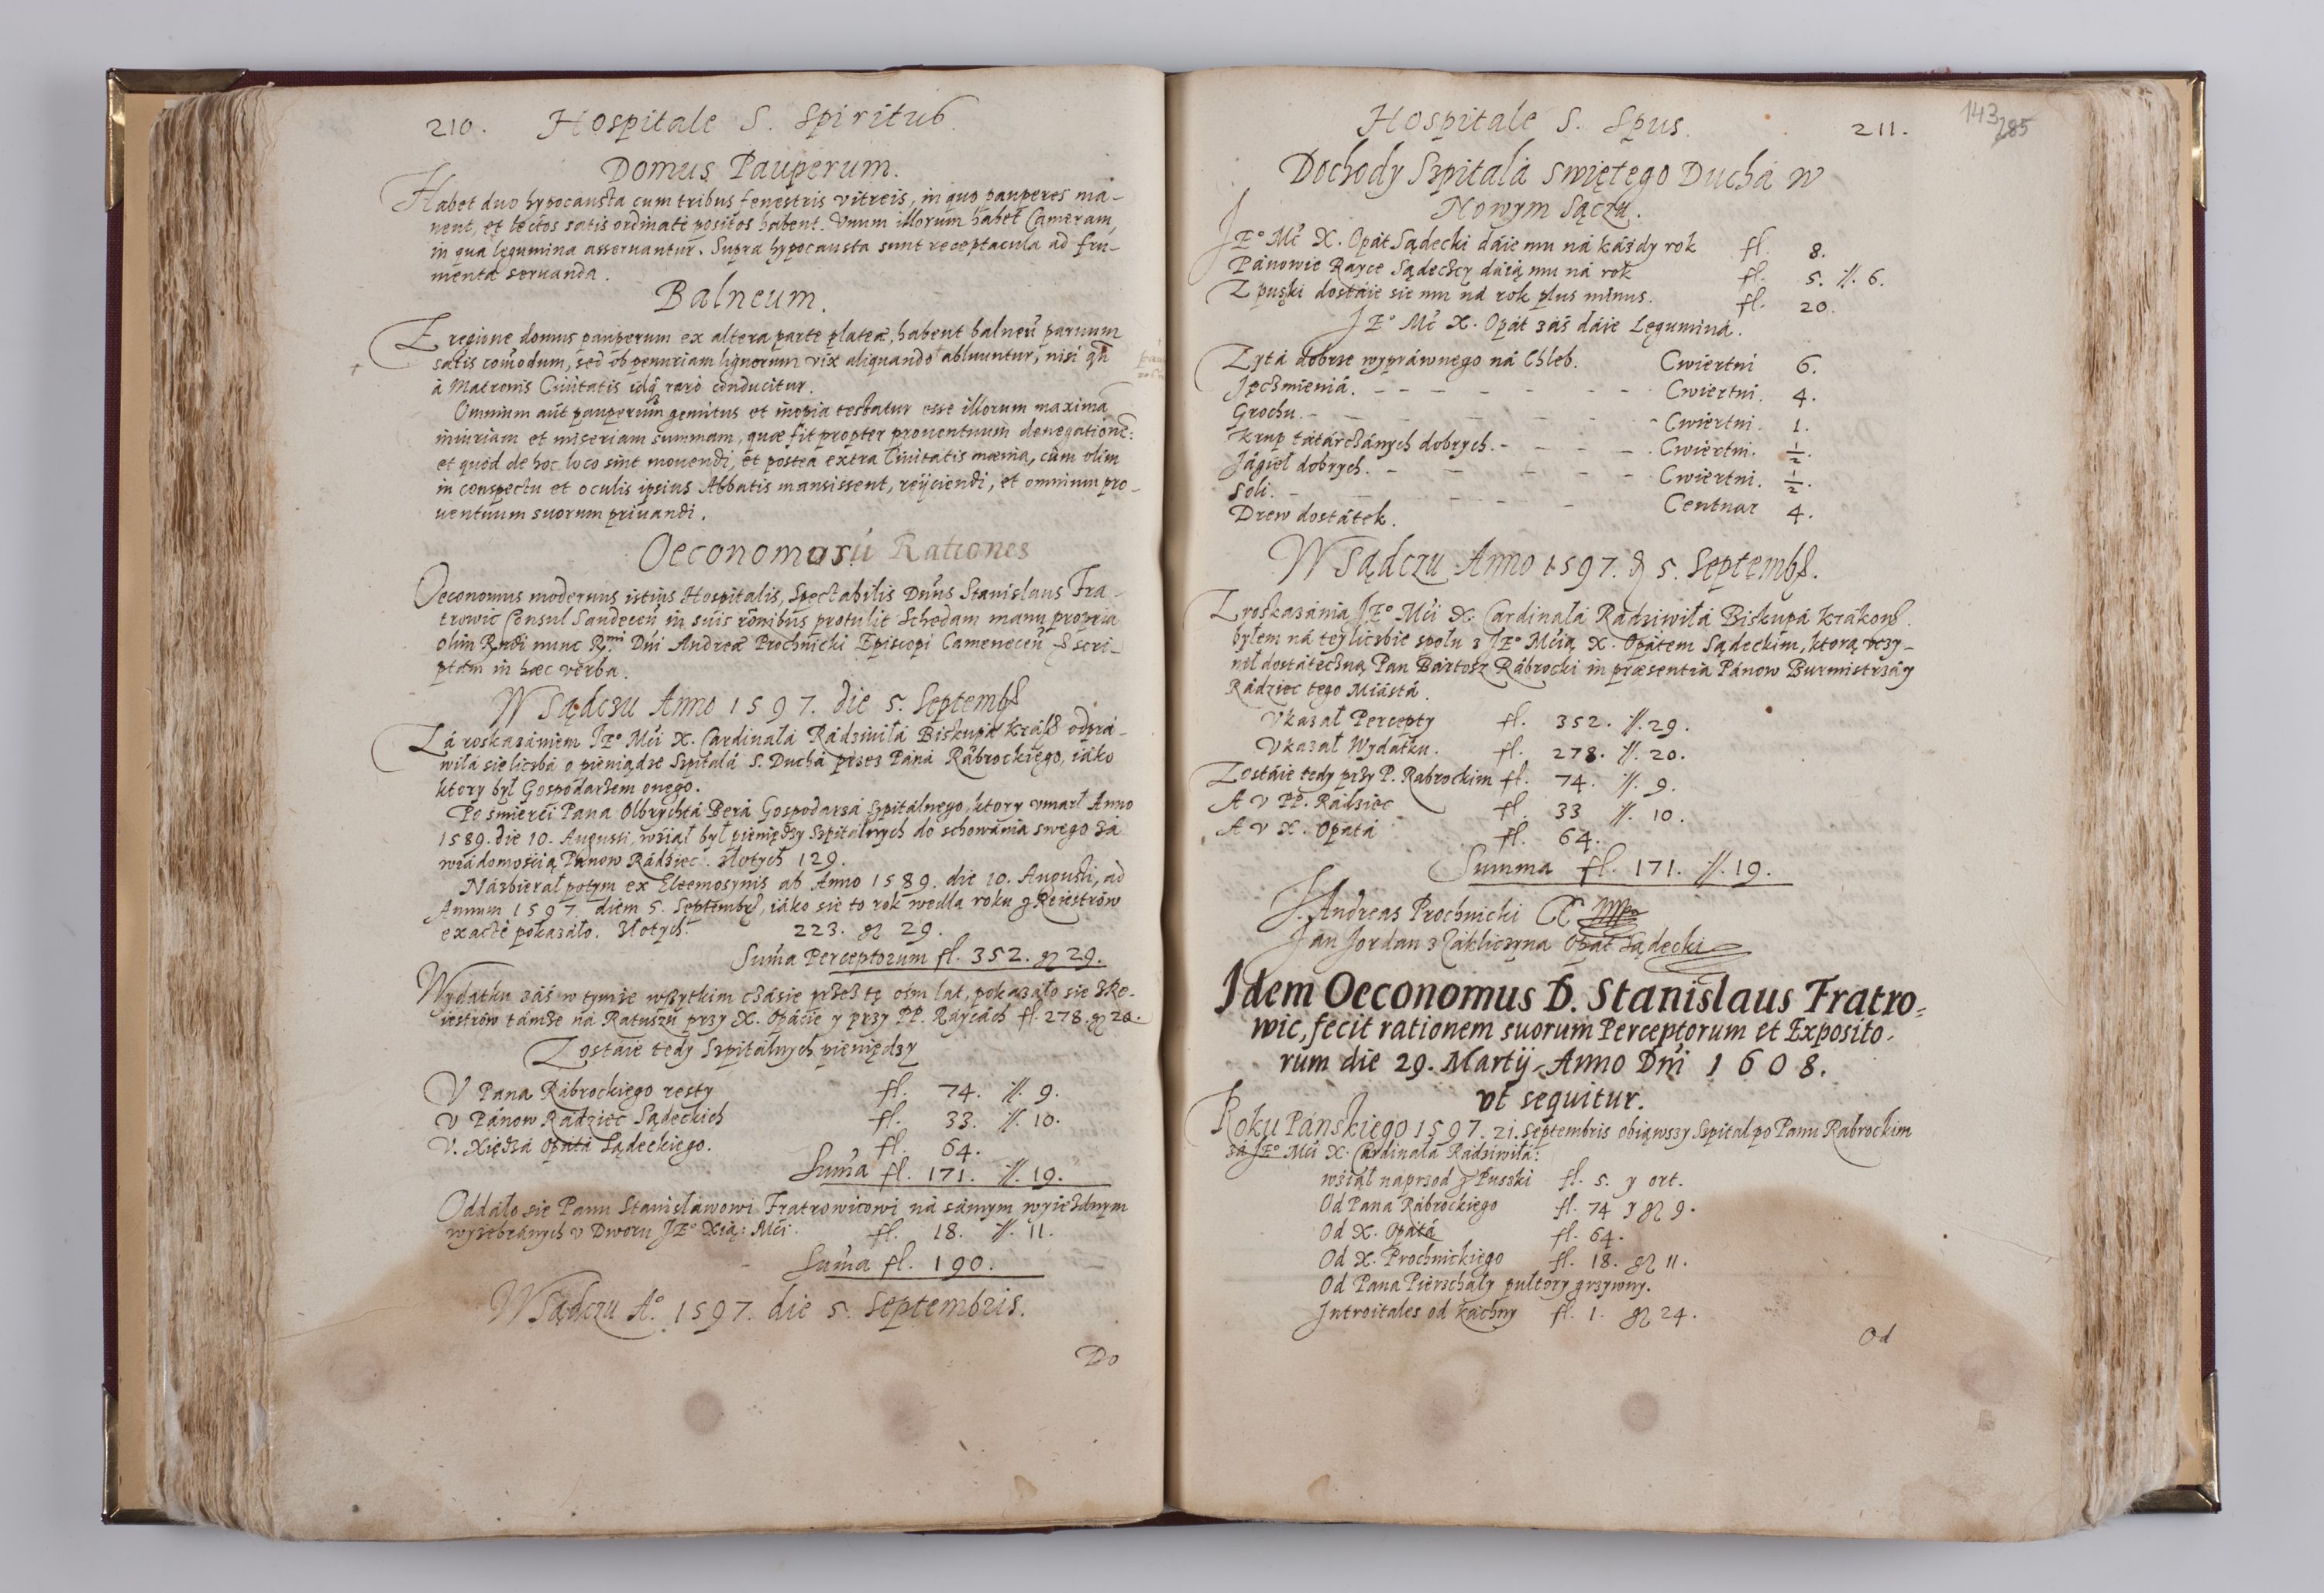 210. Hospitale S. Spiritus.
Domus Pauperum.
Habet duo hypocausta cum tribus fenestris vitreis, in quo pauperes ma-
nent, et lectos satis ordinatè positos habent. Vnum illorum habet Cameram,
in qua legumina asseruantur. Supra hypocausta sunt receptacula ad fru-
menta seruanda.
Balneum.
E regione domus pauperum ex altera parte plateæ, habent balneũ paruum
satis comodum, sed ob penuriam lignorum vix aliquando abluuntur, nisi qñ
à Matronis Ciuitatis idq3 rarò conducitur.
Omnium aũt pauperum gemitus et inopia testatur esse illorum maximã
iniuriam et miseriam summam, quæ fit propter prouentuum denegationẽ:
et quòd de hoc loco sint mouendi, et postea extra Ciuitatis mænia, cùm olim
in conspectu et oculis ipsius Abbatis mansissent, reijciendi, et omnium pro-
uentuum suorum priuandi.
Oeconomorũ Rationes
Oeconomus modernus istius Hospitalis, Spectabilis Dñus Stanislaus Fra-
trowic Consul Sandeceñ in suis rõnibus protulit Schedam manu propria
olim Rndi nunc Rmi Dñi Andreæ Prochnicki Episcopi Cameneceñ scri-
ptam in hæc verba.
W Sądczu Anno 1597. die 5. Septemb
Zá roskazániem JEº Mći X. Cardinałá Rádziwiłá Biskupá Krak odprá-
wiłá się liczbá o pieniądze Szpitalá S. Duchá przez Páná Rábrockiego, iáko
ktory był Gospodarzem onego.
Po śmierći Pana Olbrychtá Perá Gospodarzá szpitálnego, ktory vmarł Anno
1589. die 10. Augusti, wziął był pieniędzy Szpitálnych do schowánia swego zá
wiádomośćią Pánow Rádziec. złotych 129.
Názbierał potym ex Eleemosynis ab Anno 1589. die 10. Augusti, ad
Annum 1597. diem 5. Septembr, iáko sie to rok wedla roku z Reiestrów
exactè pokazáło. złotych. 223. gr 29.
Suma Perceptorum fl. 352. gr 29.
Wydatku záś w tymże wszytkim czásie przez tę ośm lat, pokazáło sie z Re-
iestrów támże ná Ratuszu przy X. Opácie y przy PP. Ráycách fl. 278. gr 20.
Zostáie tedy Szpitálnych pieniędzy
V Pana Rábrockiego resty fl. 74. //. 9.
V Pánow Rádziec Sądeckich fl. 33. //. 10.
V. Xiędzá Opátá Sądeckiego. fl. 64.
Suma fl. 171. //. 19.
Oddáło sie Panu Stanisławowi Fratrowicowi ná sámym wyiezdnym
wyżebránych v Dworu JEº Xią: Mći. fl. 18. //. 11.
Suma fl. 190.
W Sądczu Aº. 1597. die 5. Septembris.
Do
Hospitale S. Spus. 211.
143
285
Dochody Szpitalá Swiętego Duchá w
Nowym Sączu.
JEº Mć X. Opát Sądecki dáie mu ná káżdy rok fl. 8.
Pánowie Rayce Sądeczcy dáią mu ná rok fl. 5. //. 6.
Z puszki dostáie sie mu ná rok plus minus. fl. 20.
JEº Mć X. Opát záś dáie Leguminá.
Zytá dobrze wypráwnego ná Chleb. Cwiertni 6.
Jęczmieniá. - - - - Cwiertni. 4.
Grochu. - - - - Cwiertni. 1.
Krup tátárczánych dobrych. - - - Cwiertni. ½.
Jágieł dobrych. - - - - Cwiertni. ½.
Soli. - - - - Centnar 4.
Drew dostátek.
W Sądczu Anno 1597. d 5. Septemb.
Z roskazánia JEº Mći X. Cardinałá Rádziwiłá Biskupá Krákow.
byłem ná tey liczbie społu z JEº Mćią X. Opátem Sądeckim, ktorą vczy-
nił dostáteczną Pan Bártosz Rábrocki in præsentia Pánow Burmistrzá y
Rádziec tego Miástá.
Vkazał Percepty fl. 352. //. 29.
Vkazał Wydátku. fl. 278. //. 20.
Zostáie tedy przy P. Rabrockim fl. 74. //. 9.
A v PP. Rádziec fl. 33 //. 10.
A v X. Opatá fl. 64.
Summa fl. 171. //. 19.
J. Andreas Prochnicki
Ján Jordan z Zákliczyna Opat Sądecki
Idem Oeconomus D. Stanislaus Fratro-
wic, fecit rationem suorum Perceptorum et Exposito-
rum die 29. Martij Anno Dñi 1608.
vt sequitur.
Roku Páńskiego 1597. 21. Septembris obiąwszy Szpital po Panu Rabrockim
zá JEº Mći X. Cardinałá Rádziwiłá:
wziął naprzod z Puszki fl. 5. y ort.
Od Pana Rábrockiego fl. 74 y gr 9.
Od X. Opatá fl. 64.
Od X. Prochnickiego fl. 18. gr 11.
Od Pana Pierzchały pułtory grzywny.
Introitales od Kachny fl. 1. gr 24.
Od